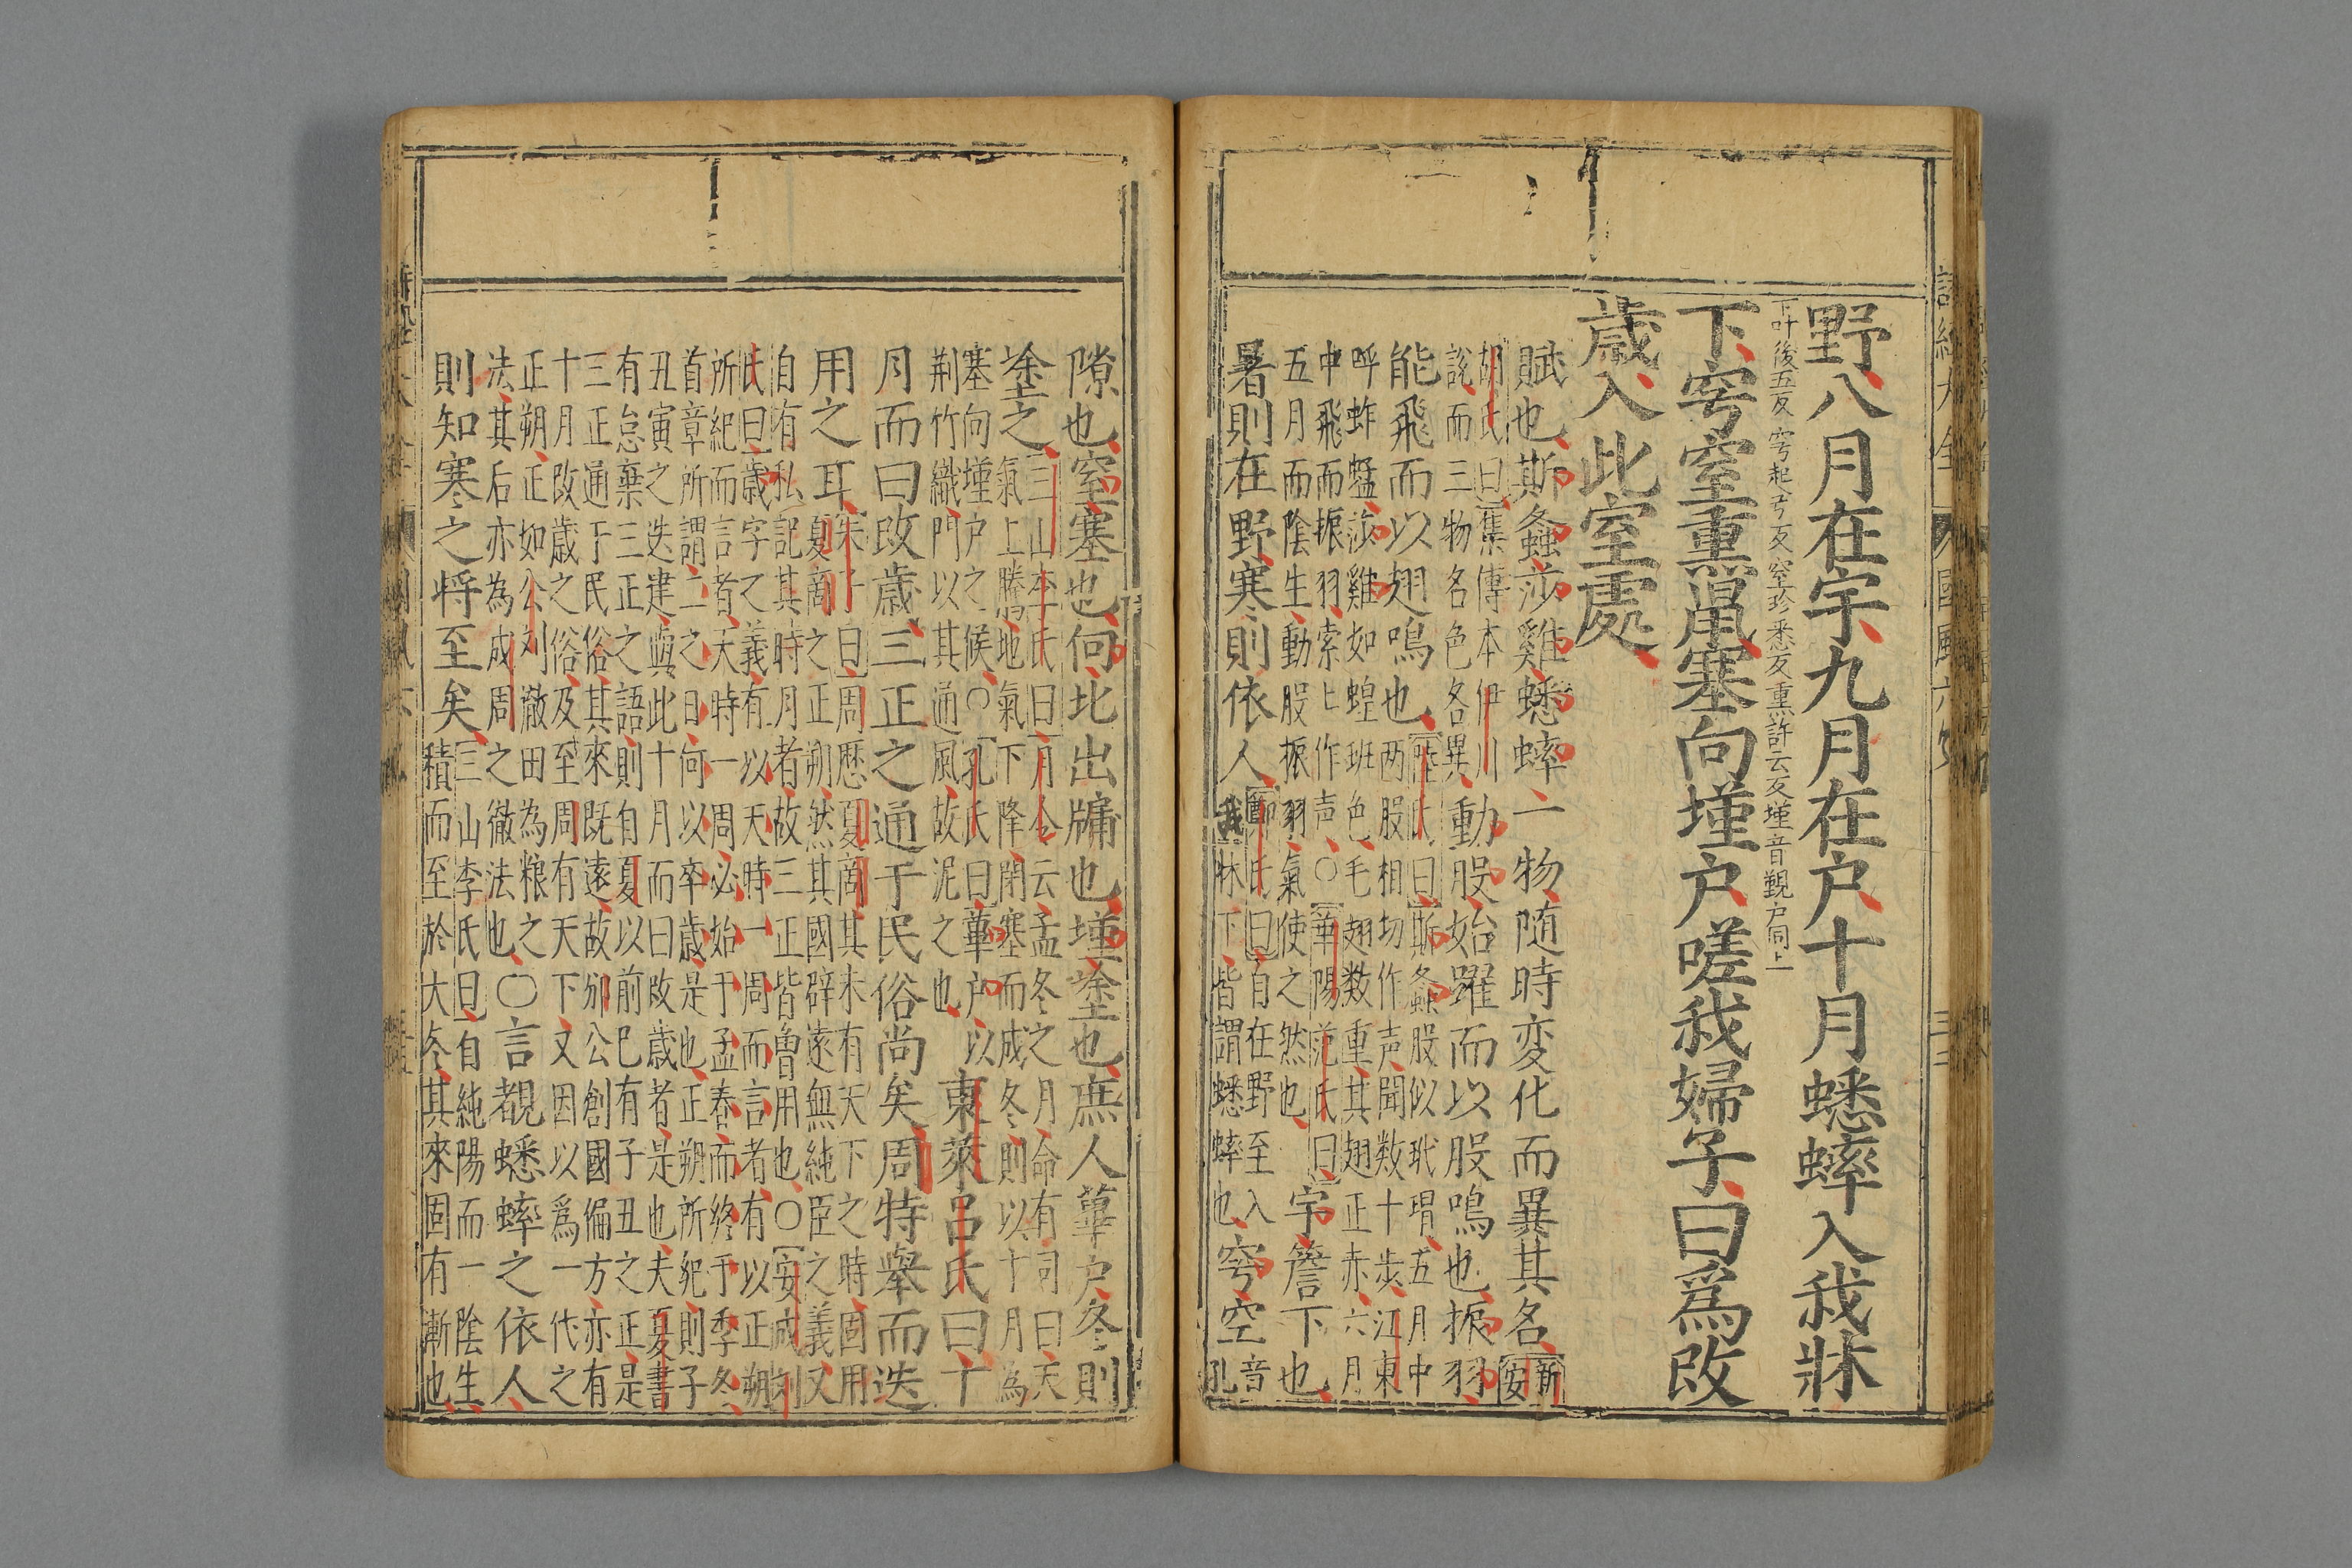 野八月在宇九月在户十月蟋蟀入我牀
下叶後五反穹起弓反窒珍悉反熏許云反墐音覲户同上
下穹窒熏鼠塞向墐户嗟我婦子曰爲改
歲入此室處
賦也斯螽莎雞蟋蟀一物隨時変化而異其名新安
胡氏曰集傳本伊川
說而三物名色各異動股始躍而以股鳴也振羽
能飛而以翅鳴也陸氏曰斯螽股似玳瑁五月中
两股相切作声聞数十步江東
呼蚱蜢莎雞如蝗班色毛翅数重其翅正赤六月
中飛而振羽索上作声○華陽范氏曰
五月而陰生動股振羽氣使之然也宇簷下也
暑則在野寒則依人鄭氏曰自在野至入
我牀下皆謂蟋蟀也穹空音
孔
隙也窒塞也向北出牖也墐塗也庶人蓽户冬則
塗之三山李氏曰月令云孟冬之月命有司曰天
氣上騰地氣下降閉塞而成冬則以十月為
塞向墐户之候○孔氏曰蓽户以
荆竹織門以其通風故泥之也東萊吕氏曰十
月而曰改歲三正之通于民俗尚矣周特舉而迭
用之耳朱子曰周歷夏商其未有天下之時固用
夏商之正朔然其國僻遠無純臣之義又
自有私記其時月者故三正皆曾用也○安成刘
氏曰歲字之義有以天時一周而言者有以正朔
所紀而言者天時一周必始于孟春而终于季冬
首章所謂二之日何以卒歲是也正朔所紀則子
丑寅之迭建與此十月而曰改歲者是也夫夏書
有怠棄三正之語則自夏以前已有子丑之正是
三正通于民俗其來既遠故邠公創國偏方亦有
十月改歲之俗及至周有天下又因以爲一代之
正朔正如公刘徹田為粮之
法其后亦為成周之徹法也○言覩蟋蟀之依人
則知寒之將至矣三山李氏曰自純陽而一陰生
積而至於大冬其來固有漸也